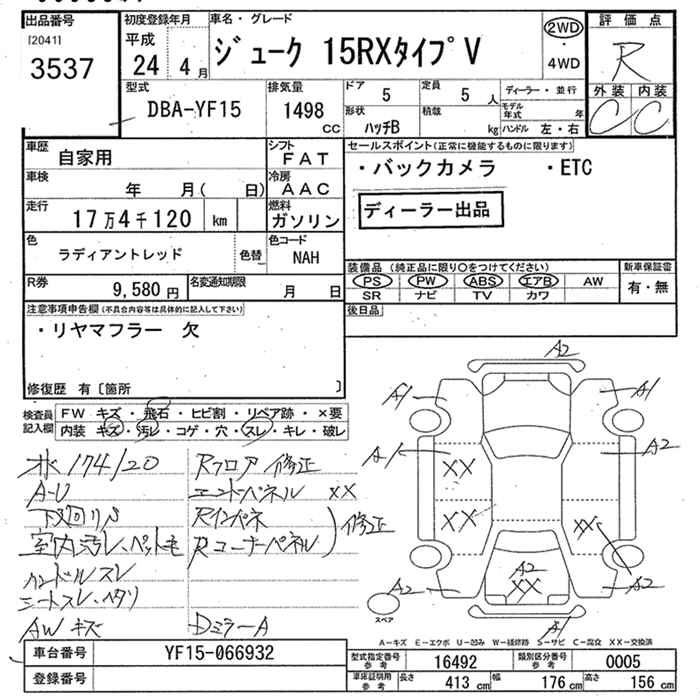 出品番号
[2041]
3537
初度登録年月
平成
24 4 月
車名・グレード
ジューク 15RXタイプV
2WD
・
4WD
評価点
R
外装 内装
C C
型式
DBA-YF15
排気量
1498
CC
ドア
5
定員
5 人
形状
ハッチB
積載
kg
ディーラー・並行
モデル年式 年
ハンドル 左・右
車歴
自家用
シフト
FAT
車検
年 月( 日)
冷房
AAC
走行
17万4千120 km
燃料
ガソリン
色
ラディアントレッド
色替
色コード
NAH
R券
9,580 円
名変通知期限
月 日
セールスポイント(正常に機能するものに限ります)
・バックカメラ ・ETC
ディーラー出品
装備品(純正品に限り○をつけてください)
新車保証書
PS PW ABS エアB AW
SR ナビ TV カワ
有・無
後日品
注意事項申告欄(不具合内容等は具体的に記入して下さい)
・リヤマフラー 欠
修復歴 有〔箇所 〕
検査員記入欄
FW キズ・飛石・ヒビ割・リペア跡・×要
内装 キズ・汚レ・コゲ・穴・スレ・キレ・破レ
174120
A-U
下廻りS
室内汚レ、ペット毛
ハンドルスレ
シートスレ、ヘタリ
AWキズ
Rフロア 修正
エンドパネル XX
Rインパネ
Rコーナーパネル
修正
DミラーA
A2
A1
A1
A1
A2
XX
XX
XX
A2
XX
A2
A2
A1
スペア
A-キズ E-エクボ U-凹み W-補修跡 S-サビ C-腐食 XX-交換済
車台番号
YF15-066932
登録番号
型式指定番号
参考
16492
類別区分番号
参考
0005
車庫証明用
参考
長さ
413 cm
幅
176 cm
高さ
156 cm